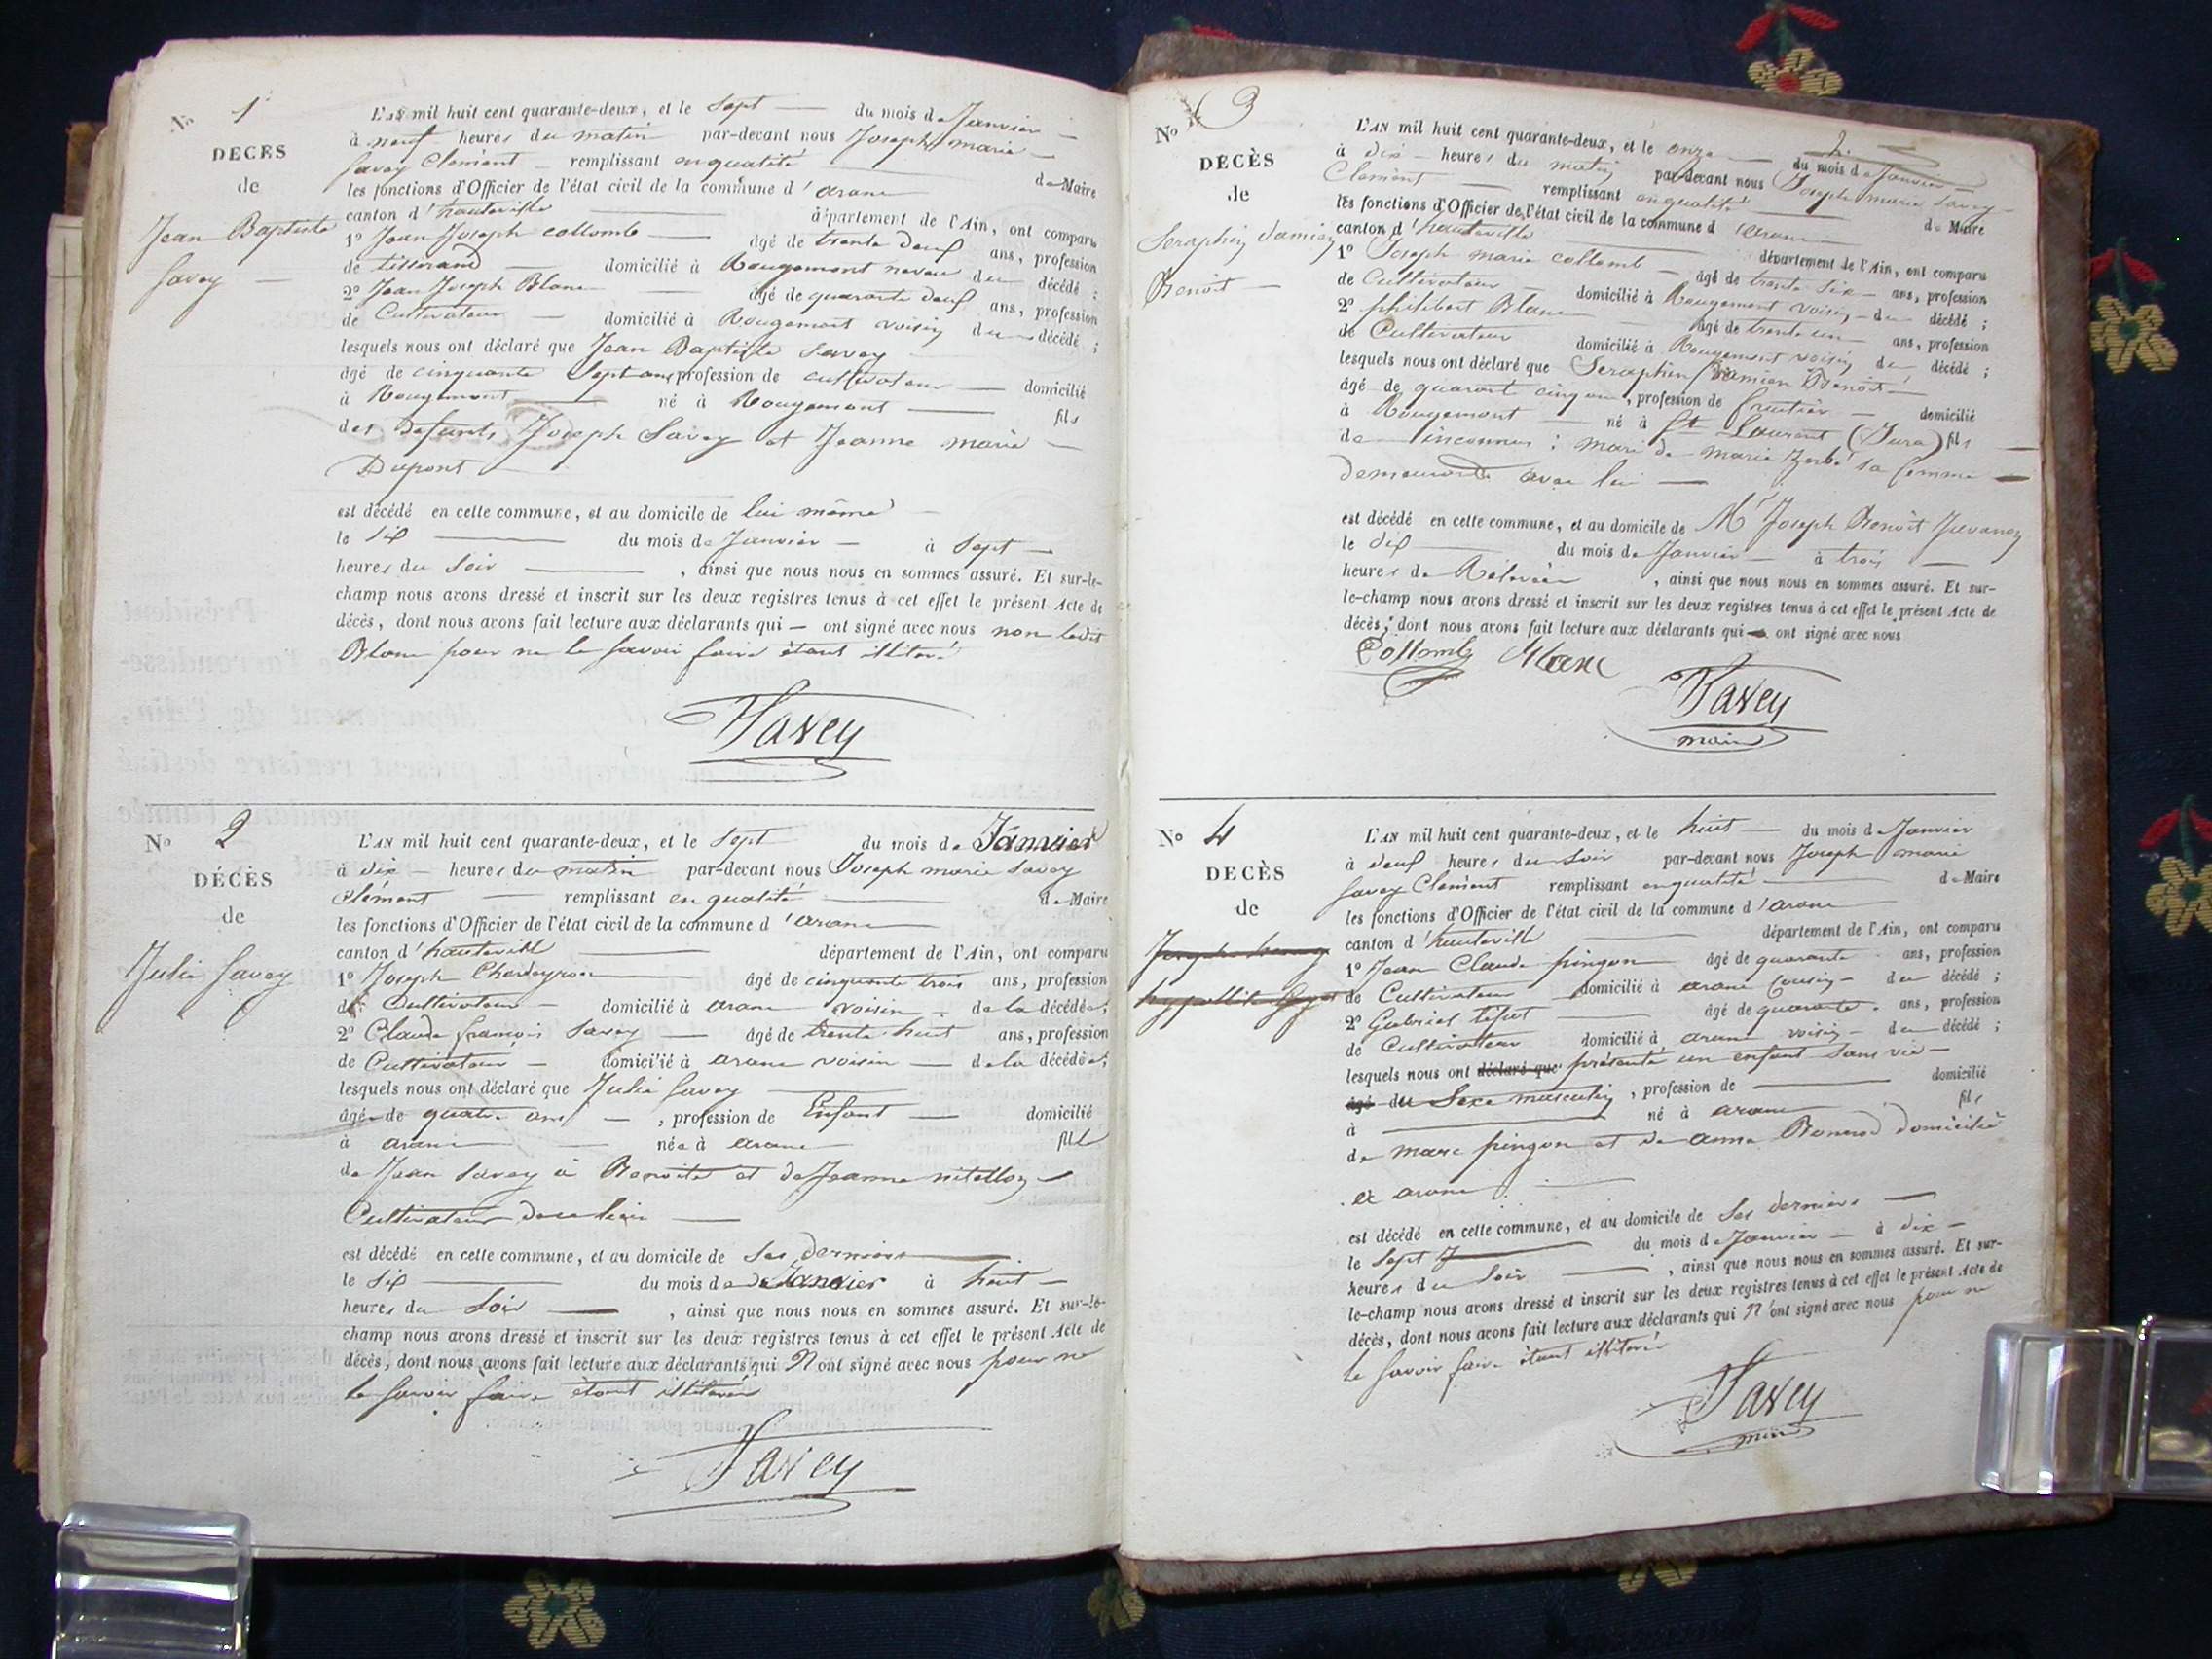 No 1
DÉCÈS
de
Jean Baptiste
Savey
L'AN mil huit cent quarante-deux, et le Sept du mois de Janvier
à neuf heures du matin par-devant nous Joseph marie
Savey Clément remplissant en qualité de Maire
les fonctions d'Officier de l'état civil de la commune d'arane
canton d'hauteville département de l'Ain, ont comparu
1º Jean Joseph collomb âgé de trente deux ans, profession
de tisserand domicilié à Rougemont neveu du décédé ;
2º Jean Joseph Blanc âgé de quarante deux ans, profession
de Cultivateur domicilié à Rougemont voisin du décédé ;
lesquels nous ont déclaré que Jean Baptiste Savey
âgé de cinquante Sept ans profession de cultivateur domicilié
à Rougemont né à Rougemont fils
des défunts Joseph Savey et Jeanne marie
Dupont
est décédé en cette commune, et au domicile de lui même
le six du mois de Janvier à Sept
heures du Soir , ainsi que nous nous en sommes assuré. Et sur-le-
champ nous avons dressé et inscrit sur les deux registres tenus à cet effet le présent Acte de
décès, dont nous avons fait lecture aux déclarants qui — ont signé avec nous non ledit
Blanc pour ne le savoir faire étant illitéré
Savey
No 2
DÉCÈS
de
Julie Savey
L'AN mil huit cent quarante-deux, et le Sept du mois de Janvier
à dix heures du matin par-devant nous Joseph marie Savey
Clément remplissant en qualité de Maire
les fonctions d'Officier de l'état civil de la commune d'arane
canton d'hauteville département de l'Ain, ont comparu
1º Joseph âgé de cinquante trois ans, profession
de Cultivateur domicilié à arane voisin de la décédée ;
2º Claude françois Savey âgé de trente huit ans, profession
de Cultivateur domicilié à arane voisin de la décédée ;
lesquels nous ont déclaré que Julie Savey
âgée de quatre ans , profession de Enfant domicilié
à arane née à arane fille
de Jean Savey à Benoite et de Jeanne
Cultivateurs
est décédé en cette commune, et au domicile de Ses derniers
le six du mois de Janvier à huit
heures du Soir , ainsi que nous nous en sommes assuré. Et sur-le-
champ nous avons dressé et inscrit sur les deux registres tenus à cet effet le présent Acte de
décès, dont nous avons fait lecture aux déclarants qui N'ont signé avec nous pour ne
le savoir faire étant illitérés
Savey
2
No 3
DÉCÈS
de
Seraphin Damien
Benoit
L'AN mil huit cent quarante-deux, et le onze du mois de Janvier
à dix heures du matin par-devant nous Joseph marie Savey
Clément remplissant en qualité de Maire
les fonctions d'Officier de l'état civil de la commune d'arane
canton d'hauteville département de l'Ain, ont comparu
1º Joseph marie collomb âgé de trente six ans, profession
de Cultivateur domicilié à Rougemont voisin du décédé ;
2º philibert Blanc âgé de trente un ans, profession
de Cultivateur domicilié à Rougemont voisin du décédé ;
lesquels nous ont déclaré que Seraphin Damien Benoit
âgé de quarante cinq ans , profession de fruitier domicilié
à Rougemont né à St Laurent (Jura) fils
de inconnus : mari de marie sa femme
demeurante avec lui
est décédé en cette commune, et au domicile de Mr Joseph Benoit Juvanon
le dix du mois de Janvier à trois
heures de Relevée , ainsi que nous nous en sommes assuré. Et sur-
le-champ nous avons dressé et inscrit sur les deux registres tenus à cet effet le présent Acte de
décès, dont nous avons fait lecture aux déclarants qui — ont signé avec nous
Collomb Blanc
Savey
maire
No 4
DÉCÈS
de
L'AN mil huit cent quarante-deux, et le huit du mois de Janvier
à deux heures du Soir par-devant nous Joseph marie
Savey Clément remplissant en qualité de Maire
les fonctions d'Officier de l'état civil de la commune d'arane
canton d'hauteville département de l'Ain, ont comparu
1º Jean Claude pingon âgé de quarante ans, profession
de Cultivateur domicilié à arane Cousin du décédé ;
2º Gabriel tissot âgé de quarante ans, profession
de Cultivateur domicilié à arane voisin du décédé ;
lesquels nous ont déclaré que présenté un enfant sans vie
âgé du Sexe masculin , profession de domicilié
à né à arane fils
de marc pingon et de anne domicilié
à arane
est décédé en cette commune, et au domicile de Ses derniers
le sept du mois de Janvier à dix
heures du Soir , ainsi que nous nous en sommes assuré. Et sur-
le-champ nous avons dressé et inscrit sur les deux registres tenus à cet effet le présent Acte de
décès, dont nous avons fait lecture aux déclarants qui N'ont signé avec nous pour ne
le savoir faire étant illitérés
Savey
maire